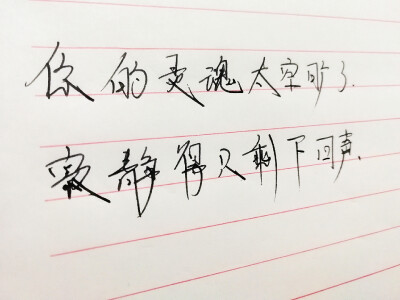 你的灵魂太空旷了.
寂静得只剩下回声.